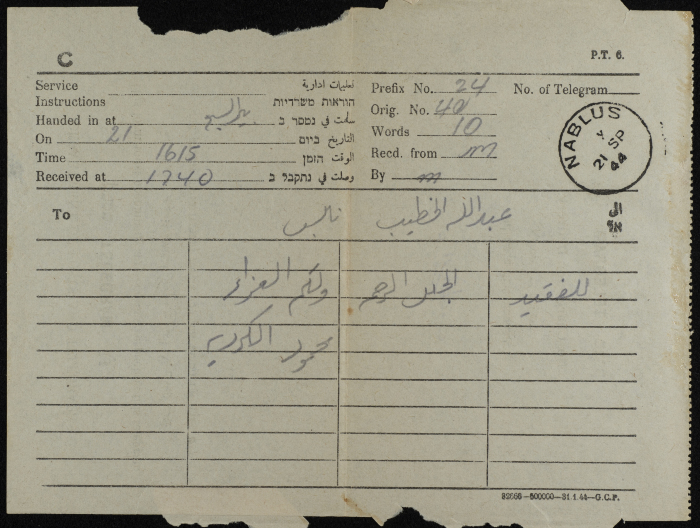 C
P.T. 6.
Service تعليمات ادارية
Instructions הוראות משרדיות
Prefix No. 24 No. of Telegram
Handed in at بئر السبع سلمت في נמסר ב
Orig. No. 40
On 21 التاريخ ביום
Words 10
Time 1615 الوقت הזמן
Recd. from m
Received at 1740 وصلت في נתקבל ב
By m
NABLUS
Y
21 SP
44
To عبدالله الخطيب نابلس الى אל
للفقيد الجنة الرحمة ولكم العزاء
محمود
92666—500000—31.1.44—G.C.P.